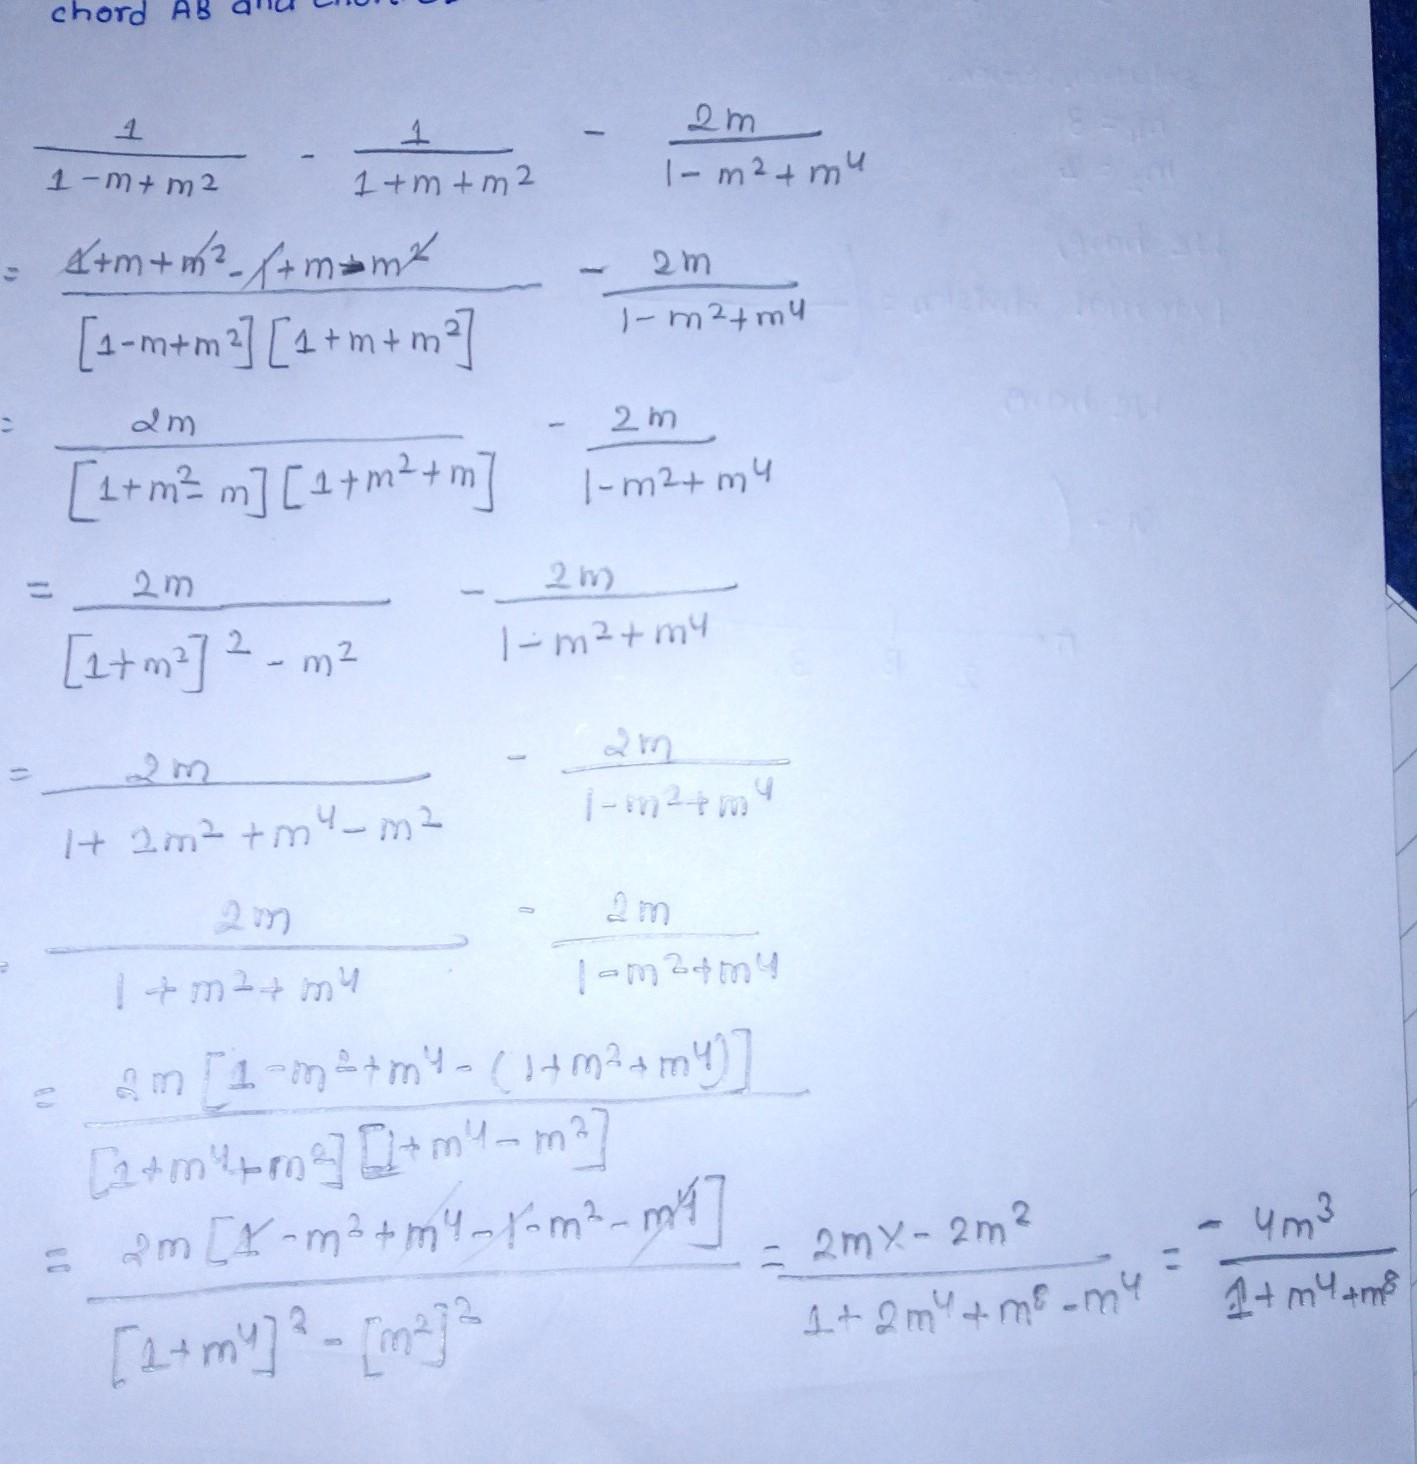 chord AB and
1/(1-m+m²) - 1/(1+m+m²) - 2m/(1-m²+m⁴)
= (1+m+m²-1+m-m²)/([1-m+m²][1+m+m²]) - 2m/(1-m²+m⁴)
= 2m/([1+m²-m][1+m²+m]) - 2m/(1-m²+m⁴)
= 2m/([1+m²]²-m²) - 2m/(1-m²+m⁴)
= 2m/(1+2m²+m⁴-m²) - 2m/(1-m²+m⁴)
= 2m/(1+m²+m⁴) - 2m/(1-m²+m⁴)
= 2m[1-m²+m⁴-(1+m²+m⁴)]/([1+m⁴+m²][1+m⁴-m²])
= 2m[1-m²+m⁴-1-m²-m⁴]/([1+m⁴]²-[m²]²) = 2m×-2m²/(1+2m⁴+m⁸-m⁴) = -4m³/(1+m⁴+m⁸)